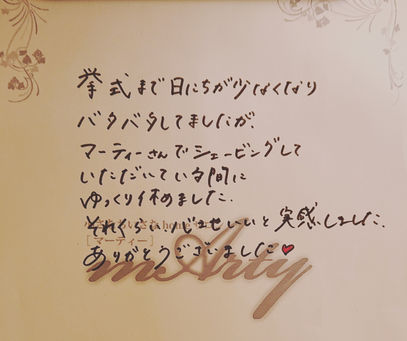 挙式まで日にちが少なくなり
バタバタしてましたが、
マーティーさんでシェービングして
いただいている間に
ゆっくり休めました.
それくらい と実感しました.
home
[マーティー]
ありがとうございました♥
mArty